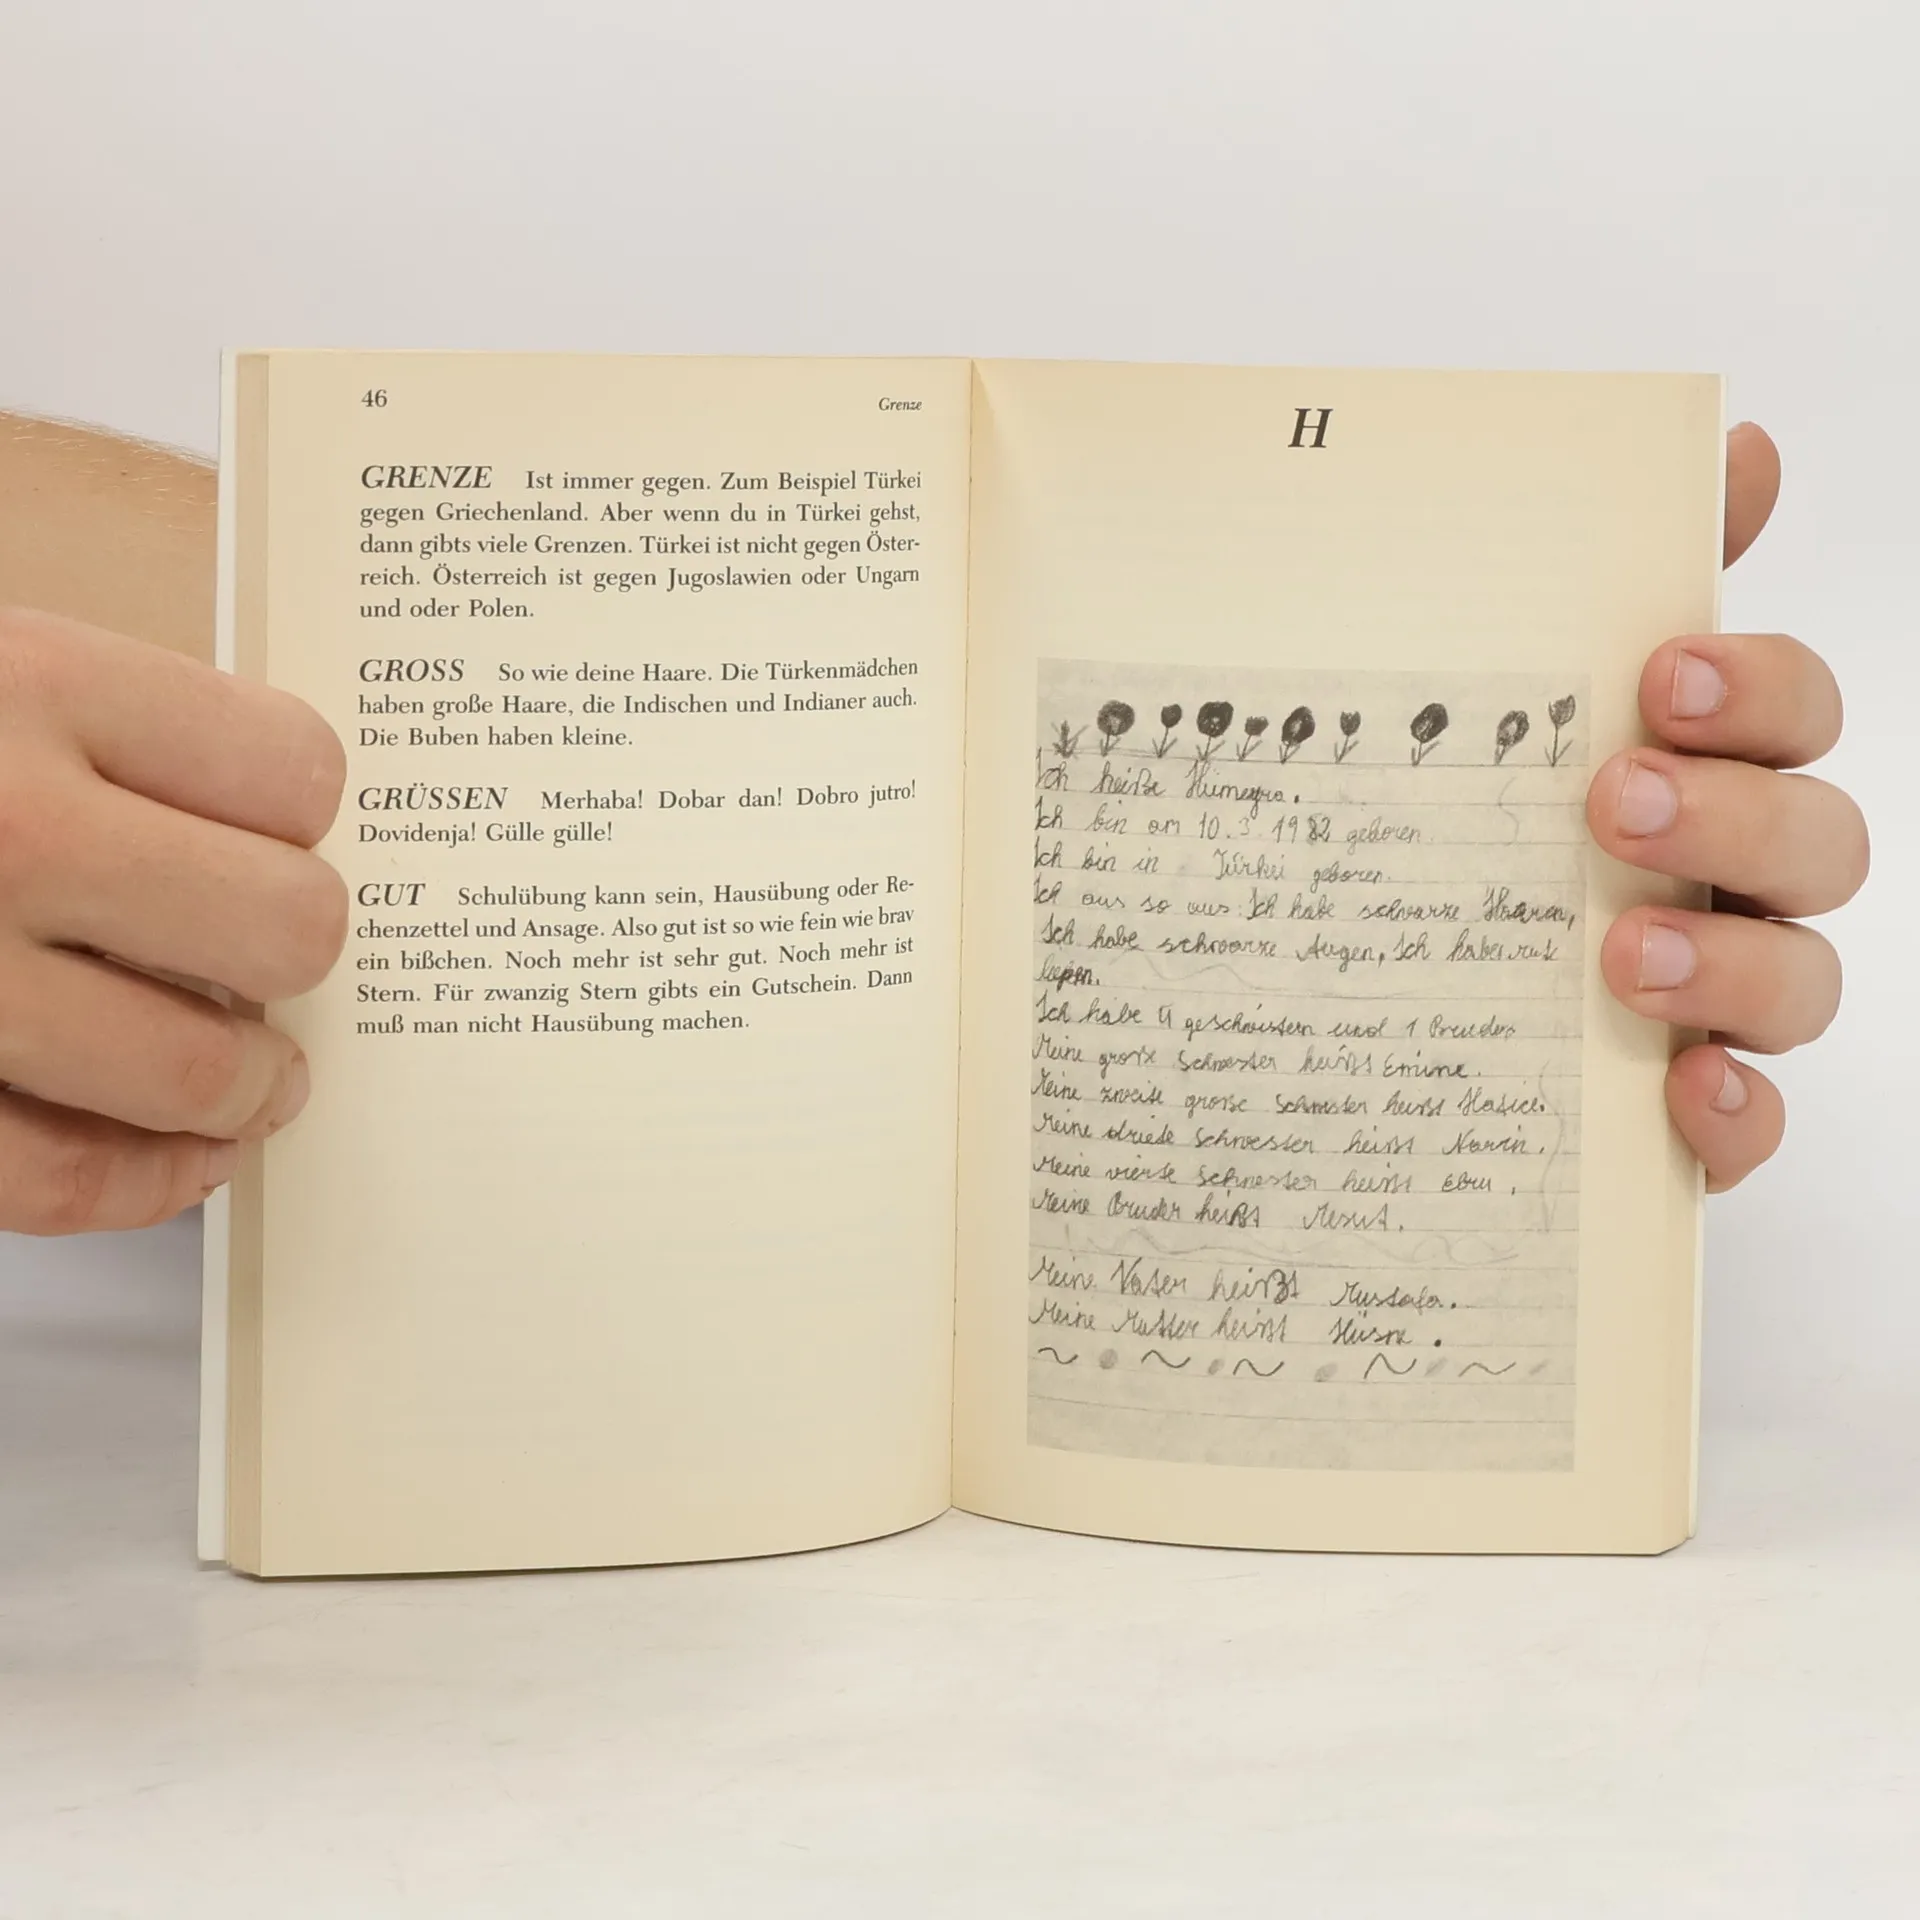 46
Grenze
GRENZE Ist immer gegen. Zum Beispiel Türkei
gegen Griechenland. Aber wenn du in Türkei gehst,
dann gibts viele Grenzen. Türkei ist nicht gegen Öster-
reich. Österreich ist gegen Jugoslawien oder Ungarn
und oder Polen.
GROSS So wie deine Haare. Die Türkenmädchen
haben große Haare, die Indischen und Indianer auch.
Die Buben haben kleine.
GRÜSSEN Merhaba! Dobar dan! Dobro jutro!
Dovidenja! Gülle gülle!
GUT Schulübung kann sein, Hausübung oder Re-
chenzettel und Ansage. Also gut ist so wie fein wie brav
ein bißchen. Noch mehr ist sehr gut. Noch mehr ist
Stern. Für zwanzig Stern gibts ein Gutschein. Dann
muß man nicht Hausübung machen.
H
Ich heiße Hümeyra.
Ich bin am 10.3.1982 geboren.
Ich bin in Türkei geboren.
Ich aus so aus: Ich habe schwarze Haaren,
Ich habe schwarze Augen, Ich habe
Ich habe 4 geschwistern und 1 Bruder
Meine große Schwester heißt Emine.
Meine zweite große Schwester heißt Hatice.
Meine driete Schwester heißt Narin.
Meine vierte Schwester heißt Ebru.
Meine Bruder heißt Mesut.
Meine Vater heißt Mustafa.
Meine Mutter heißt Hüsne.